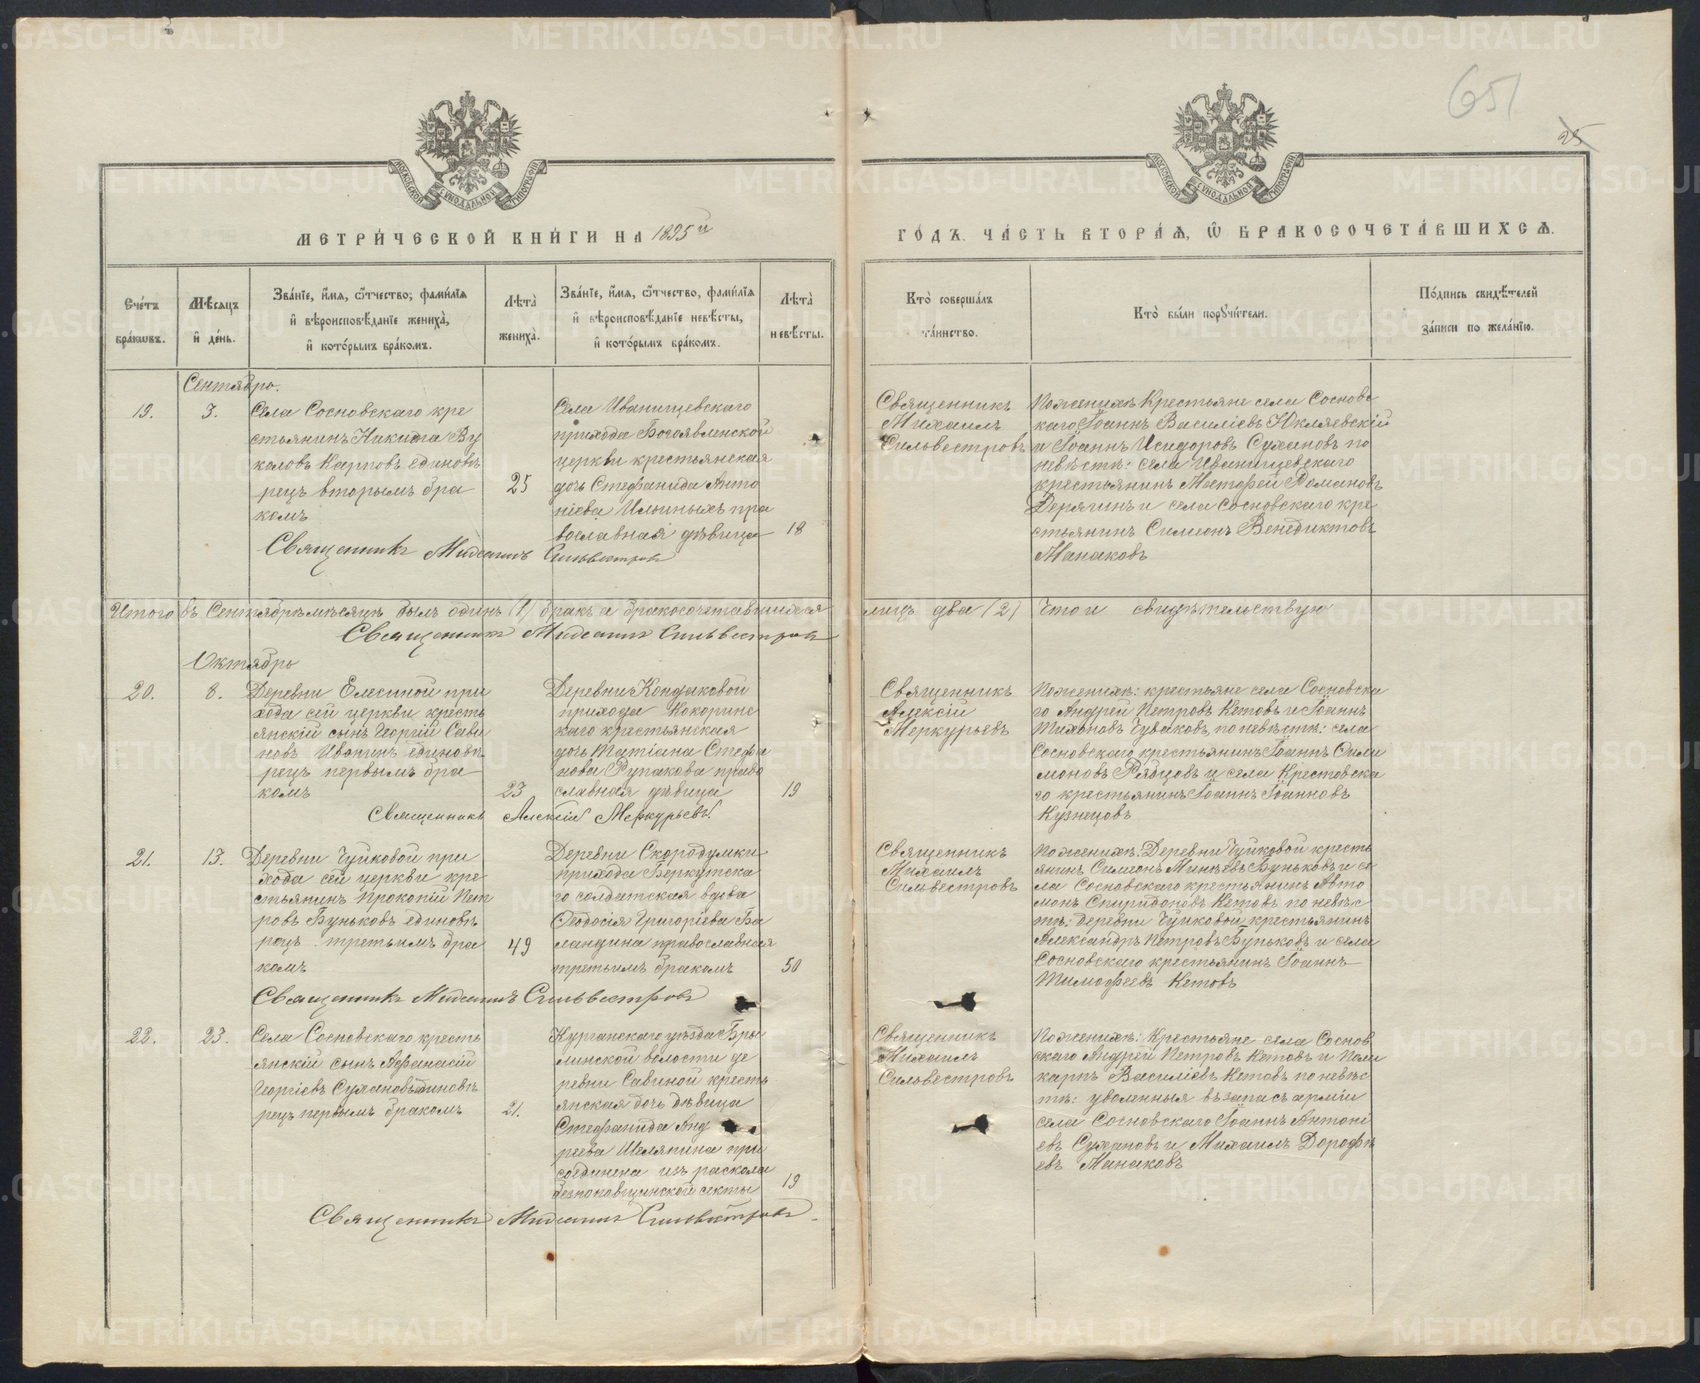 651
25
МЕТРИ́ЧЕСКОЙ КНИ́ГИ НА 1895 й
ГО́ДЪ. ЧА́СТЬ ВТОРА́Я, Ѡ БРАКОСОЧЕТА́ВШИХСЯ.
Сче́тъ бра́кѡвъ.
Мѣ́сяцъ и де́нь.
Зва́нїе, и́мя, ѻ́тчество, фами́лїя и вѣроисповѣ́данїе жениха̀, и кото́рымъ бра́комъ.
Лѣта̀ жениха̀.
Зва́нїе, и́мя, ѻ́тчество, фами́лїя и вѣроисповѣ́данїе невѣ́сты, и кото́рымъ бра́комъ.
Лѣта̀ невѣ́сты.
Кто̀ соверша́лъ та́инство.
Кто̀ бы́ли порꙋчи́тели.
По́дпись свидѣ́телей за́писи по жела́нїю.
Сентябрь.
19.
3.
Села Сосновскаго кре
стьянинъ Никита Ву
коловъ Карповъ единовѣ
рецъ вторымъ бра
комъ
25
Села Иванищевскаго
прихода Богоявленской
церкви крестьянская
дочь Стефанида Анто
ніева Ильиныхъ пра
вославная дѣвица
18
Священникъ Михаилъ Сильвестровъ
Священникъ
Михаилъ
Сильвестровъ
По женихѣ: Крестьяне села Соснов
каго Іоаннъ Василіевъ
и Іоаннъ Исидоровъ Сухановъ по
невѣстѣ: села Иванищевскаго
крестьянинъ Меѳодій Романовъ
Дерягинъ и села Сосновскаго кре
стьянинъ Симеонъ Венедиктовъ
Манаковъ
Итого въ Сентябрѣ мѣсяцѣ былъ одинъ (1) бракъ а бракосочетавшихся
лицъ два (2) Что и свидѣтельствую
Священникъ Михаилъ Сильвестровъ
Октябрь
20.
8.
Деревни Елесиной при
хода сей церкви кресть
янскій сынъ Георгій Сави
новъ Иванинъ единовѣ
рецъ первымъ бра
комъ
23
Деревни Кондаковой
прихода Кокоринс
каго крестьянская
дочь Татіана Стефа
нова Рупакова право
славная дѣвица
19
Священникъ Алексій Меркурьевъ
Священникъ
Алексій
Меркурьевъ
По женихѣ: крестьяне села Сосновска
го Андрей Петровъ Кетовъ и Іоаннъ
Тихоновъ Чуваковъ, по невѣстѣ: села
Сосновскаго крестьянинъ Іоаннъ Фили
моновъ Рябцовъ и села Крестовска
го крестьянинъ Іоаннъ Іоанновъ
Кузнецовъ
21.
13.
Деревни Чуйковой при
хода сей церкви кре
стьянинъ Прокопій Пет
ровъ Буньковъ единовѣ
рецъ третьимъ бра
комъ
49
Деревни Скородумки
прихода Беркутска
го солдатская вдова
Ѳеодосія Григоріева Ба
ландина православная
третьимъ бракомъ
50
Священникъ Михаилъ Сильвестровъ
Священникъ
Михаилъ
Сильвестровъ
По женихѣ: Деревни Чуйковой кресть
янинъ Симеонъ Минѣевъ Буньковъ и се
ла Сосновскаго крестьянинъ Авто
монъ Спиридоновъ Кетовъ по невѣс
тѣ: деревни Чуйковой крестьянинъ
Александръ Петровъ Буньковъ и села
Сосновскаго крестьянинъ Іоаннъ
Тимоѳеевъ Кетовъ
22.
23.
Села Сосновскаго кресть
янскій сынъ Аѳанасій
Георгіевъ Сухановъ единовѣ
рецъ первымъ бракомъ
21.
Курганскаго уѣзда Бры
линской волости де
ревни Савиной кресть
янская дочь дѣвица
Стефанида Анд
реева Шеляпина при
соединена изъ раскола
безпоповщинской секты
19
Священникъ Михаилъ Сильвестровъ
Священникъ
Михаилъ
Сильвестровъ
По женихѣ: Крестьяне села Соснов
скаго Андрей Петровъ Кетовъ и Поли
карпъ Василіевъ Кетовъ по невѣс
тѣ: уволенныя въ запасъ арміи
села Сосновскаго Іоаннъ Антоні
евъ Сухановъ и Михаилъ Дороѳѣ
евъ Манаковъ